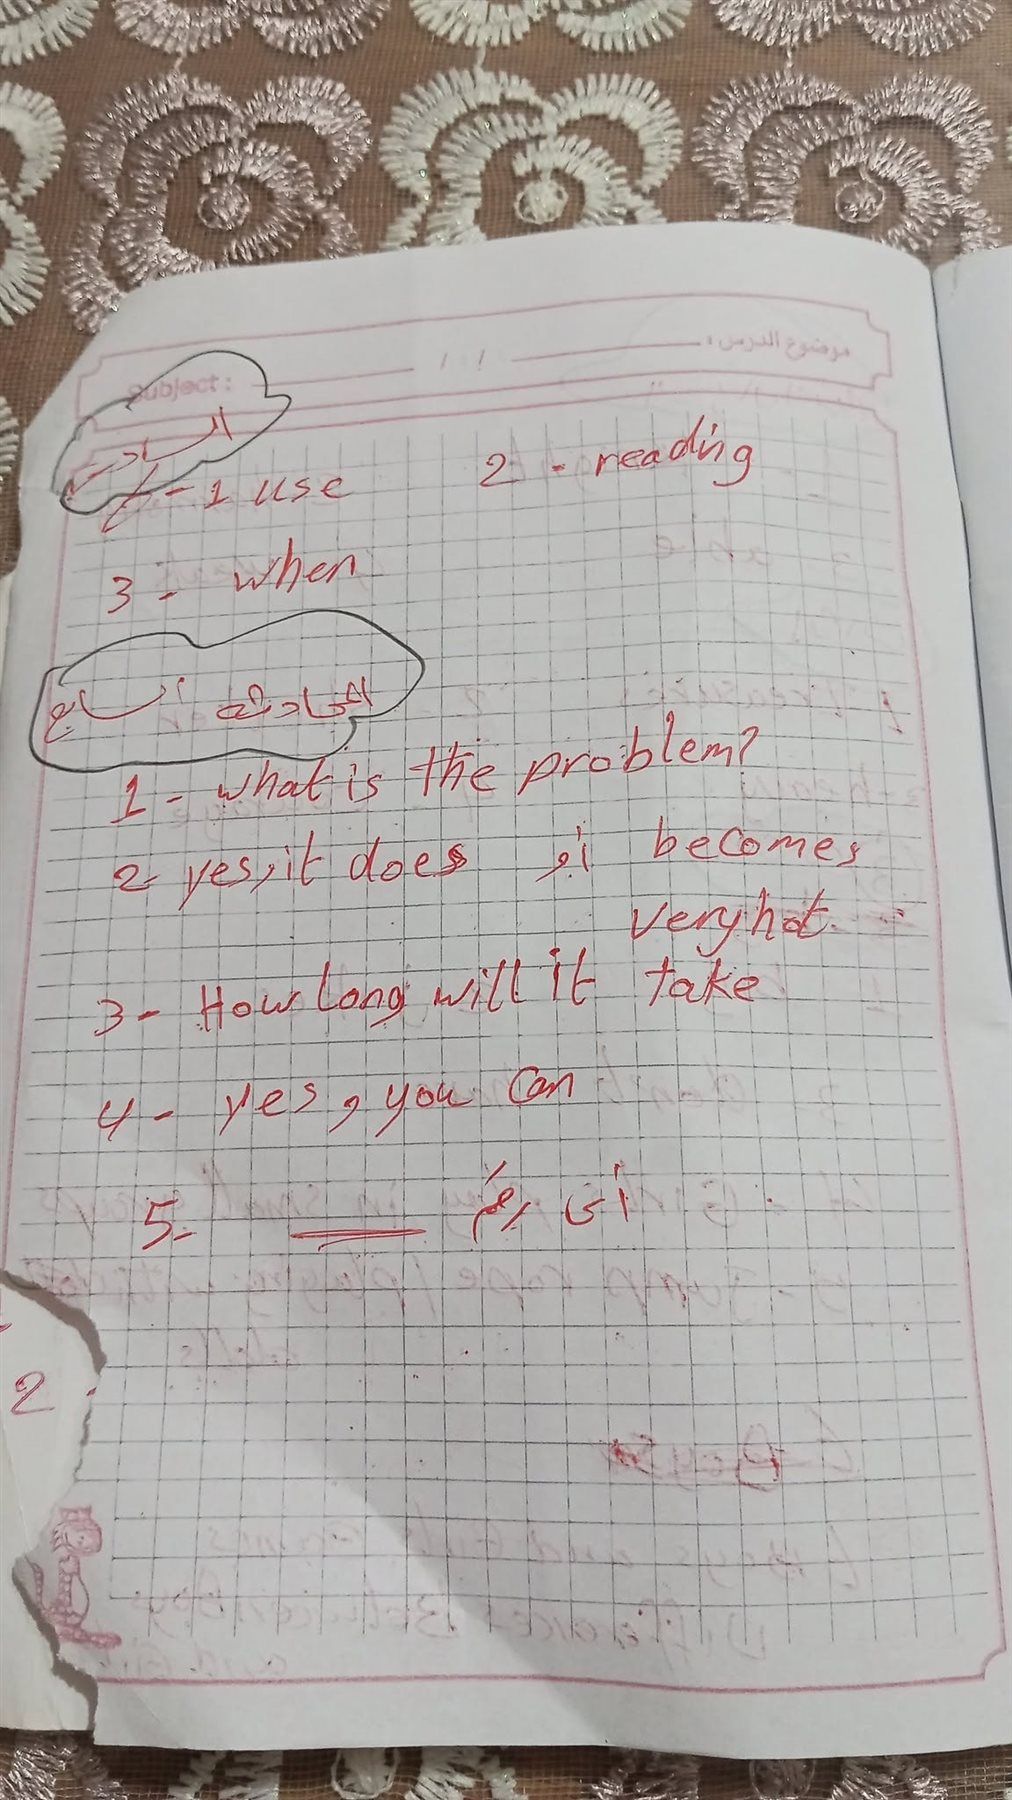 موضوع الدرس :
Subject :
السادس
1 use 2 - reading
3 - when
المحادثة السابع
1 - what is the problem?
2- yes, it does أو becomes
very hot.
3 - How long will it take
4 - yes, you can
5- أى رقم
2